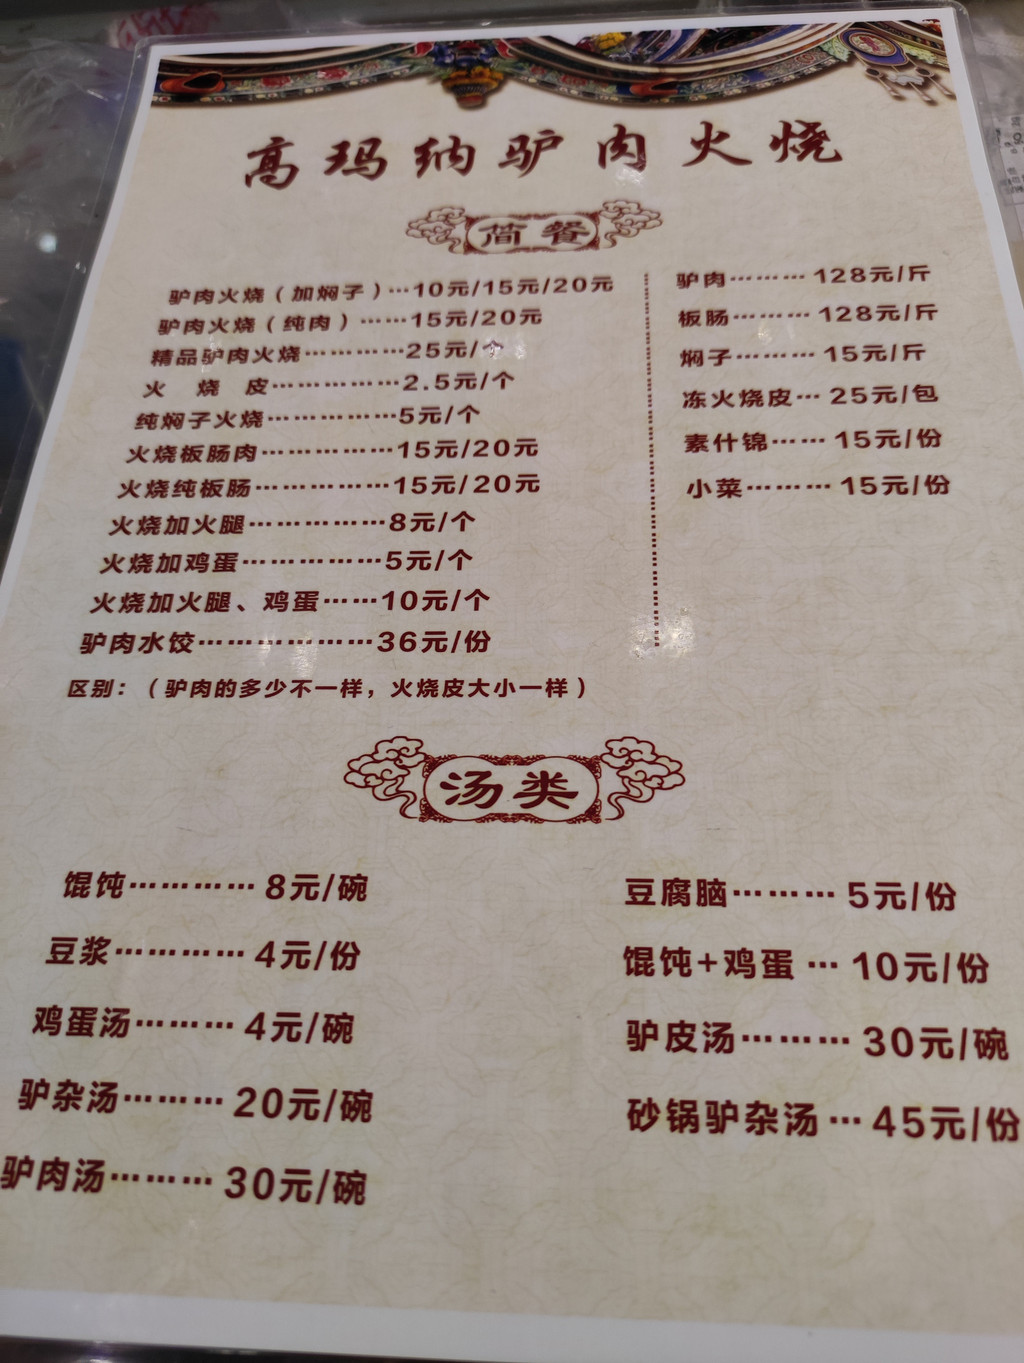 高玛纳驴肉火烧
简餐
驴肉火烧（加焖子）…10元/15元/20元
驴肉火烧（纯肉）……15元/20元
精品驴肉火烧…………25元/个
火 烧 皮……………2.5元/个
纯焖子火烧……………5元/个
火烧板肠肉……………15元/20元
火烧纯板肠……………15元/20元
火烧加火腿……………8元/个
火烧加鸡蛋……………5元/个
火烧加火腿、鸡蛋……10元/个
驴肉水饺…………………36元/份
区别：（驴肉的多少不一样，火烧皮大小一样）
驴肉………128元/斤
板肠………128元/斤
焖子………15元/斤
冻火烧皮…25元/包
素什锦……15元/份
小菜………15元/份
汤类
馄饨…………8元/碗
豆浆…………4元/份
鸡蛋汤………4元/碗
驴杂汤………20元/碗
驴肉汤………30元/碗
豆腐脑………5元/份
馄饨+鸡蛋…10元/份
驴皮汤………30元/碗
砂锅驴杂汤…45元/份